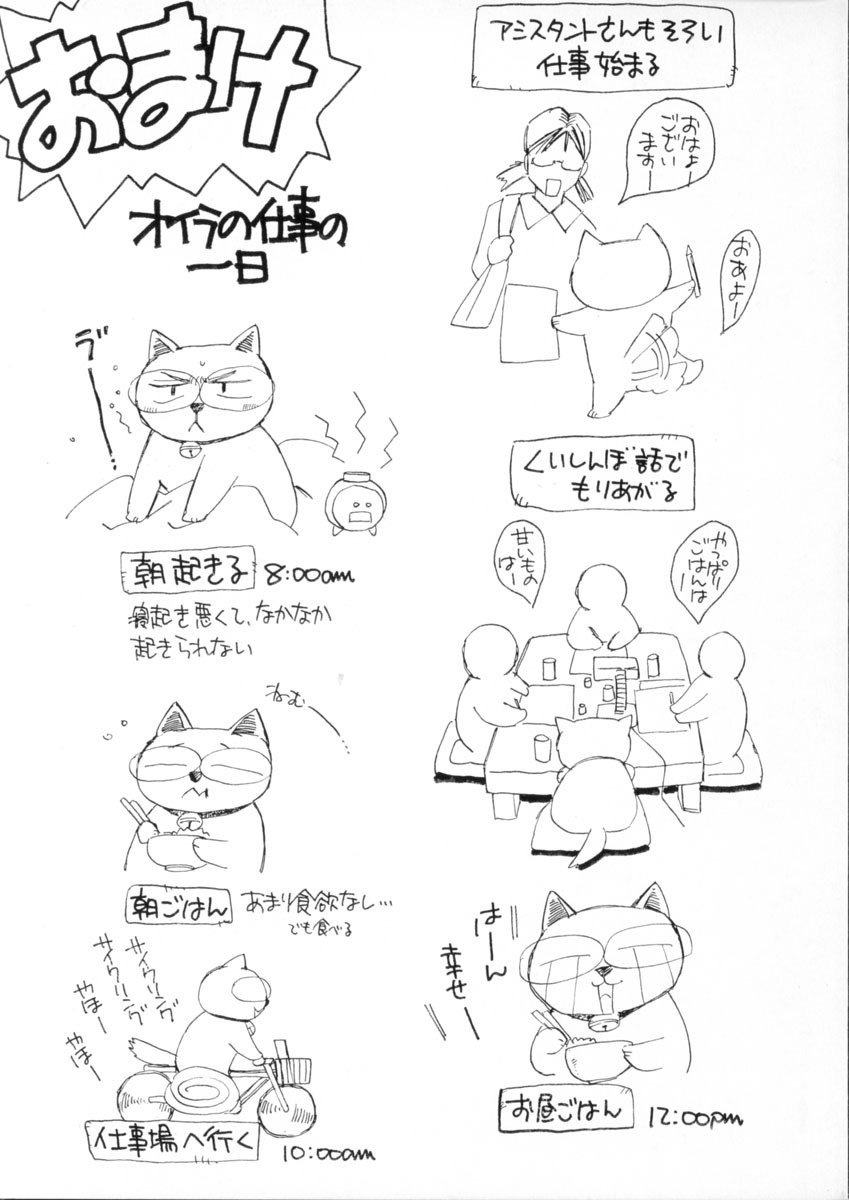 おまけ
オイラの仕事の
一日
ヴーーー…
朝起きる 8:00am
寝起き悪くて、なかなか
起きられない
ねむ……
朝ごはん あまり食欲なし…
でも食べる
サイクリング
サイクリング
やほー
やほー
仕事場へ行く 10:00am
アシスタントさんもそろい
仕事始まる
おはよー
ござい
ますー
おあよー
くいしんぼ話で
もりあがる
やっぱりー
ごはんは
甘いもの
はー
はーん
幸せー
お昼ごはん 12:00pm